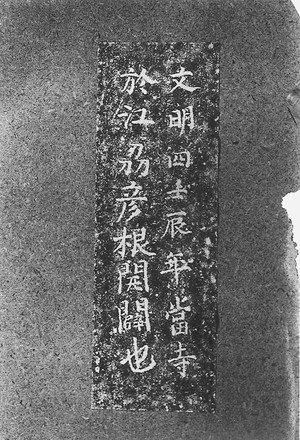 文明四壬辰年當寺
於江刕彦根開闢也